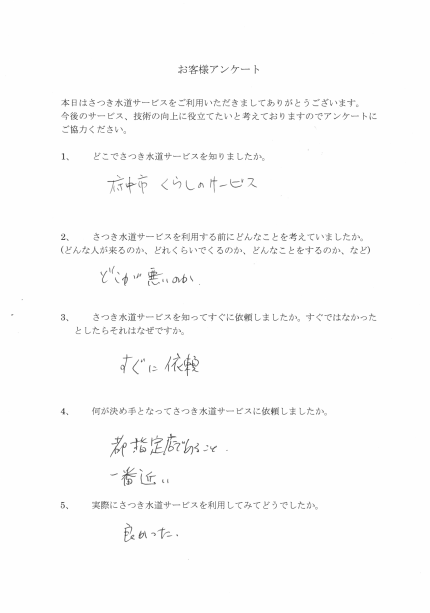 お客様アンケート
本日はさつき水道サービスをご利用いただきましてありがとうございます。
今後のサービス、技術の向上に役立てたいと考えておりますのでアンケートに
ご協力ください。
1、 どこでさつき水道サービスを知りましたか。
府中市 くらしのサービス
2、 さつき水道サービスを利用する前にどんなことを考えていましたか。
(どんな人が来るのか、どれくらいでくるのか、どんなことをするのか、など)
どこが悪いのか.
3、 さつき水道サービスを知ってすぐに依頼しましたか。すぐではなかった
としたらそれはなぜですか。
すぐに依頼
4、 何が決め手となってさつき水道サービスに依頼しましたか。
都指定店であること.
一番近い
5、 実際にさつき水道サービスを利用してみてどうでしたか。
良かった.